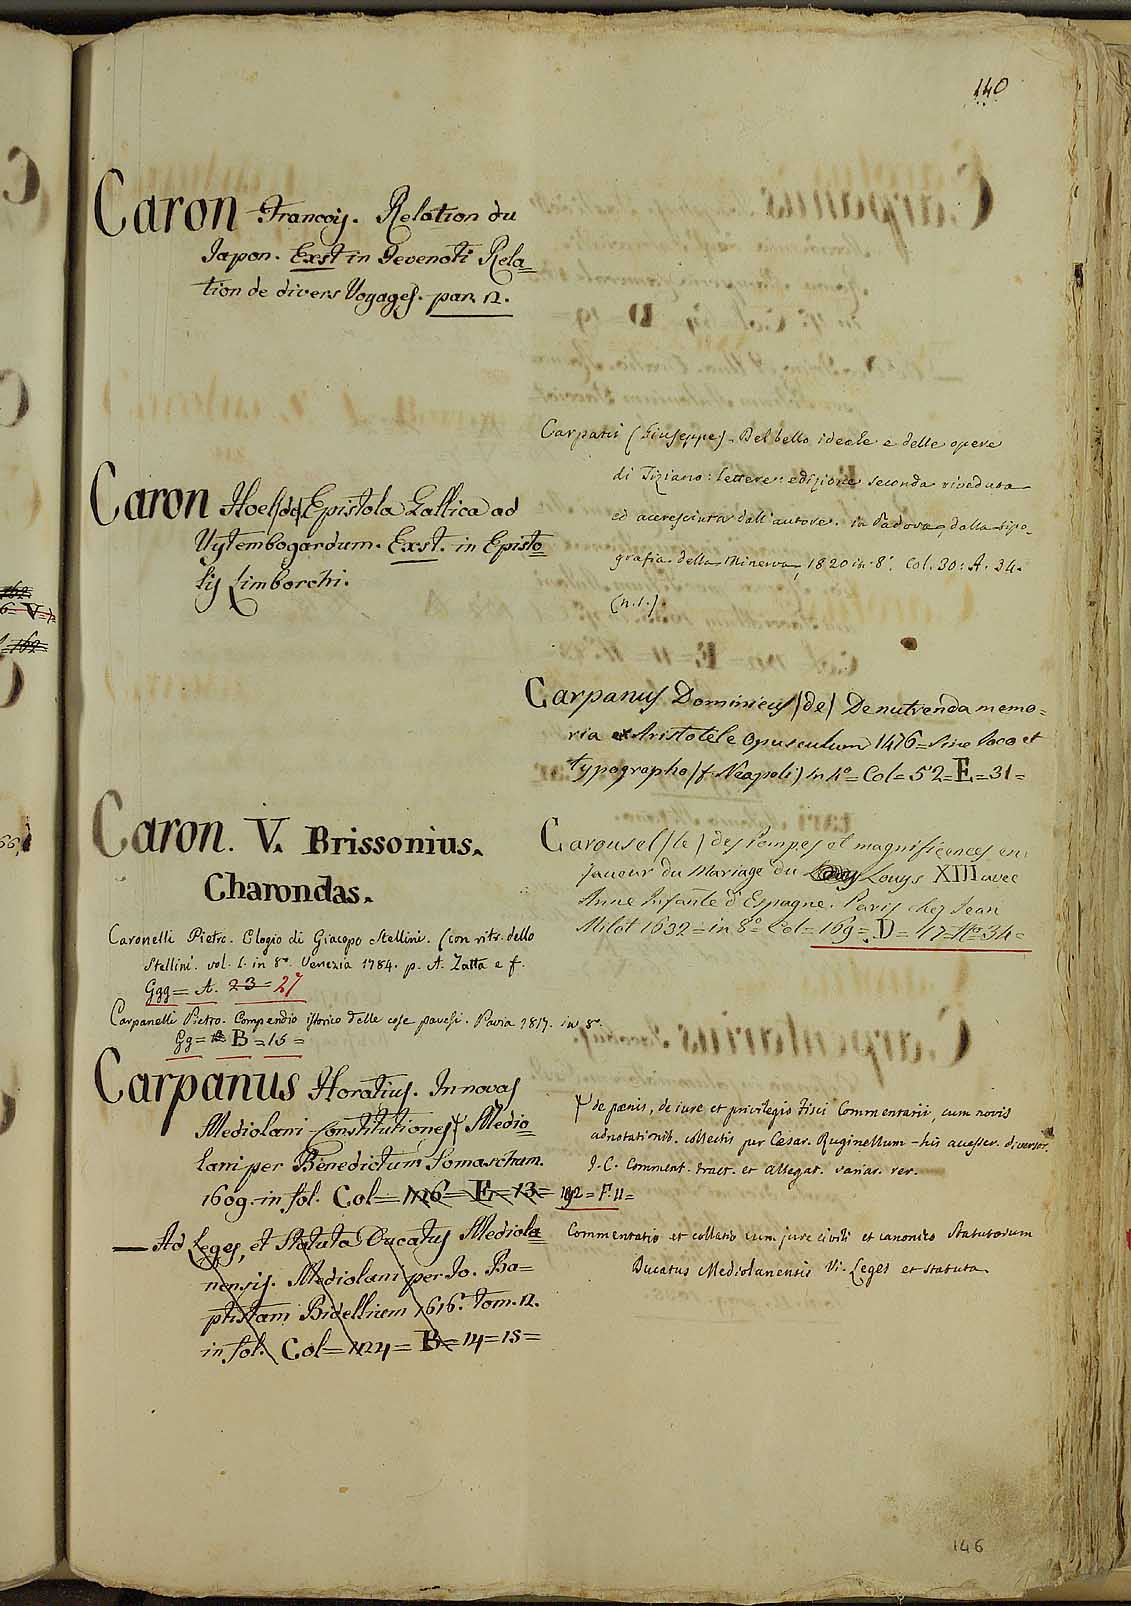 140
Caron François. Relation du
Japon. Exst in Tevenoti Rela=
tion de divers Voyages. par. 12.
Caron Noel (de) Epistola Gallica ad
Uytembogardum. Exst. in Episto=
lis Limborchi.
Caron. V. Brissonius.
Charondas.
Caronelli Pietro. Elogio di Giacopo Stellini. (con ritr. dello
Stellini. vol. 1. in 8º. Venezia 1784. p. A. Zatta e f.
Ggg = A. 23 = 27
Carpanelli Pietro. Compendio istorico delle cose pavesi. Pavia 1817. in 8º.
Gg = B = 15 =
Carpanus Horatius. In novas
Mediolani Constitutiones Medio=
lani per Benedictum Somaschum.
1609. in fol. Col = 126 = E = 13 = 192 = F. 11 =
— Ad Leges, et Statuta Ducatus Mediola=
nensis. Mediolani per Jo. Ba=
ptistam Bidellium 1616. Tom. 12.
in fol. Col = 124 = B = 14 = 15 =
Carpani (Giuseppe). Del bello ideale e delle opere
di Tiziano: lettere: edizione seconda riveduta
ed accresciuta dall'autore. in Padova, dalla tipo-
grafia della Minerva, 1820 in 8º. Col. 30: A. 34.
(n. 1.)
Carpanus Dominicus (de) De nutrenda memo=
ria ex Aristotele Opusculum 1476 = Sine loco et
typographo (f. Neapoli) in 4º = Col = 52 = E = 31 =
Carousel (le) des Pompes et magnificences en
faueur du Mariage du Louys XIII avec
Anne Infante d'Espagne. Paris chez Jean
Milot 1632 = in 8º Col = 169 = D = 47 = Nº 34 =
de pœnis, de iure et privilegio Fisci Commentarii, cum novis
adnotationib. collectis per Cesar. Ruginellum - his accesser. diversor.
I. C. Comment. tract. et allegat. variar. rer.
Commentatio et collatio cum jure civili et canonico Statutorum
Ducatus Mediolanensis Vi. Leges et statuta
146